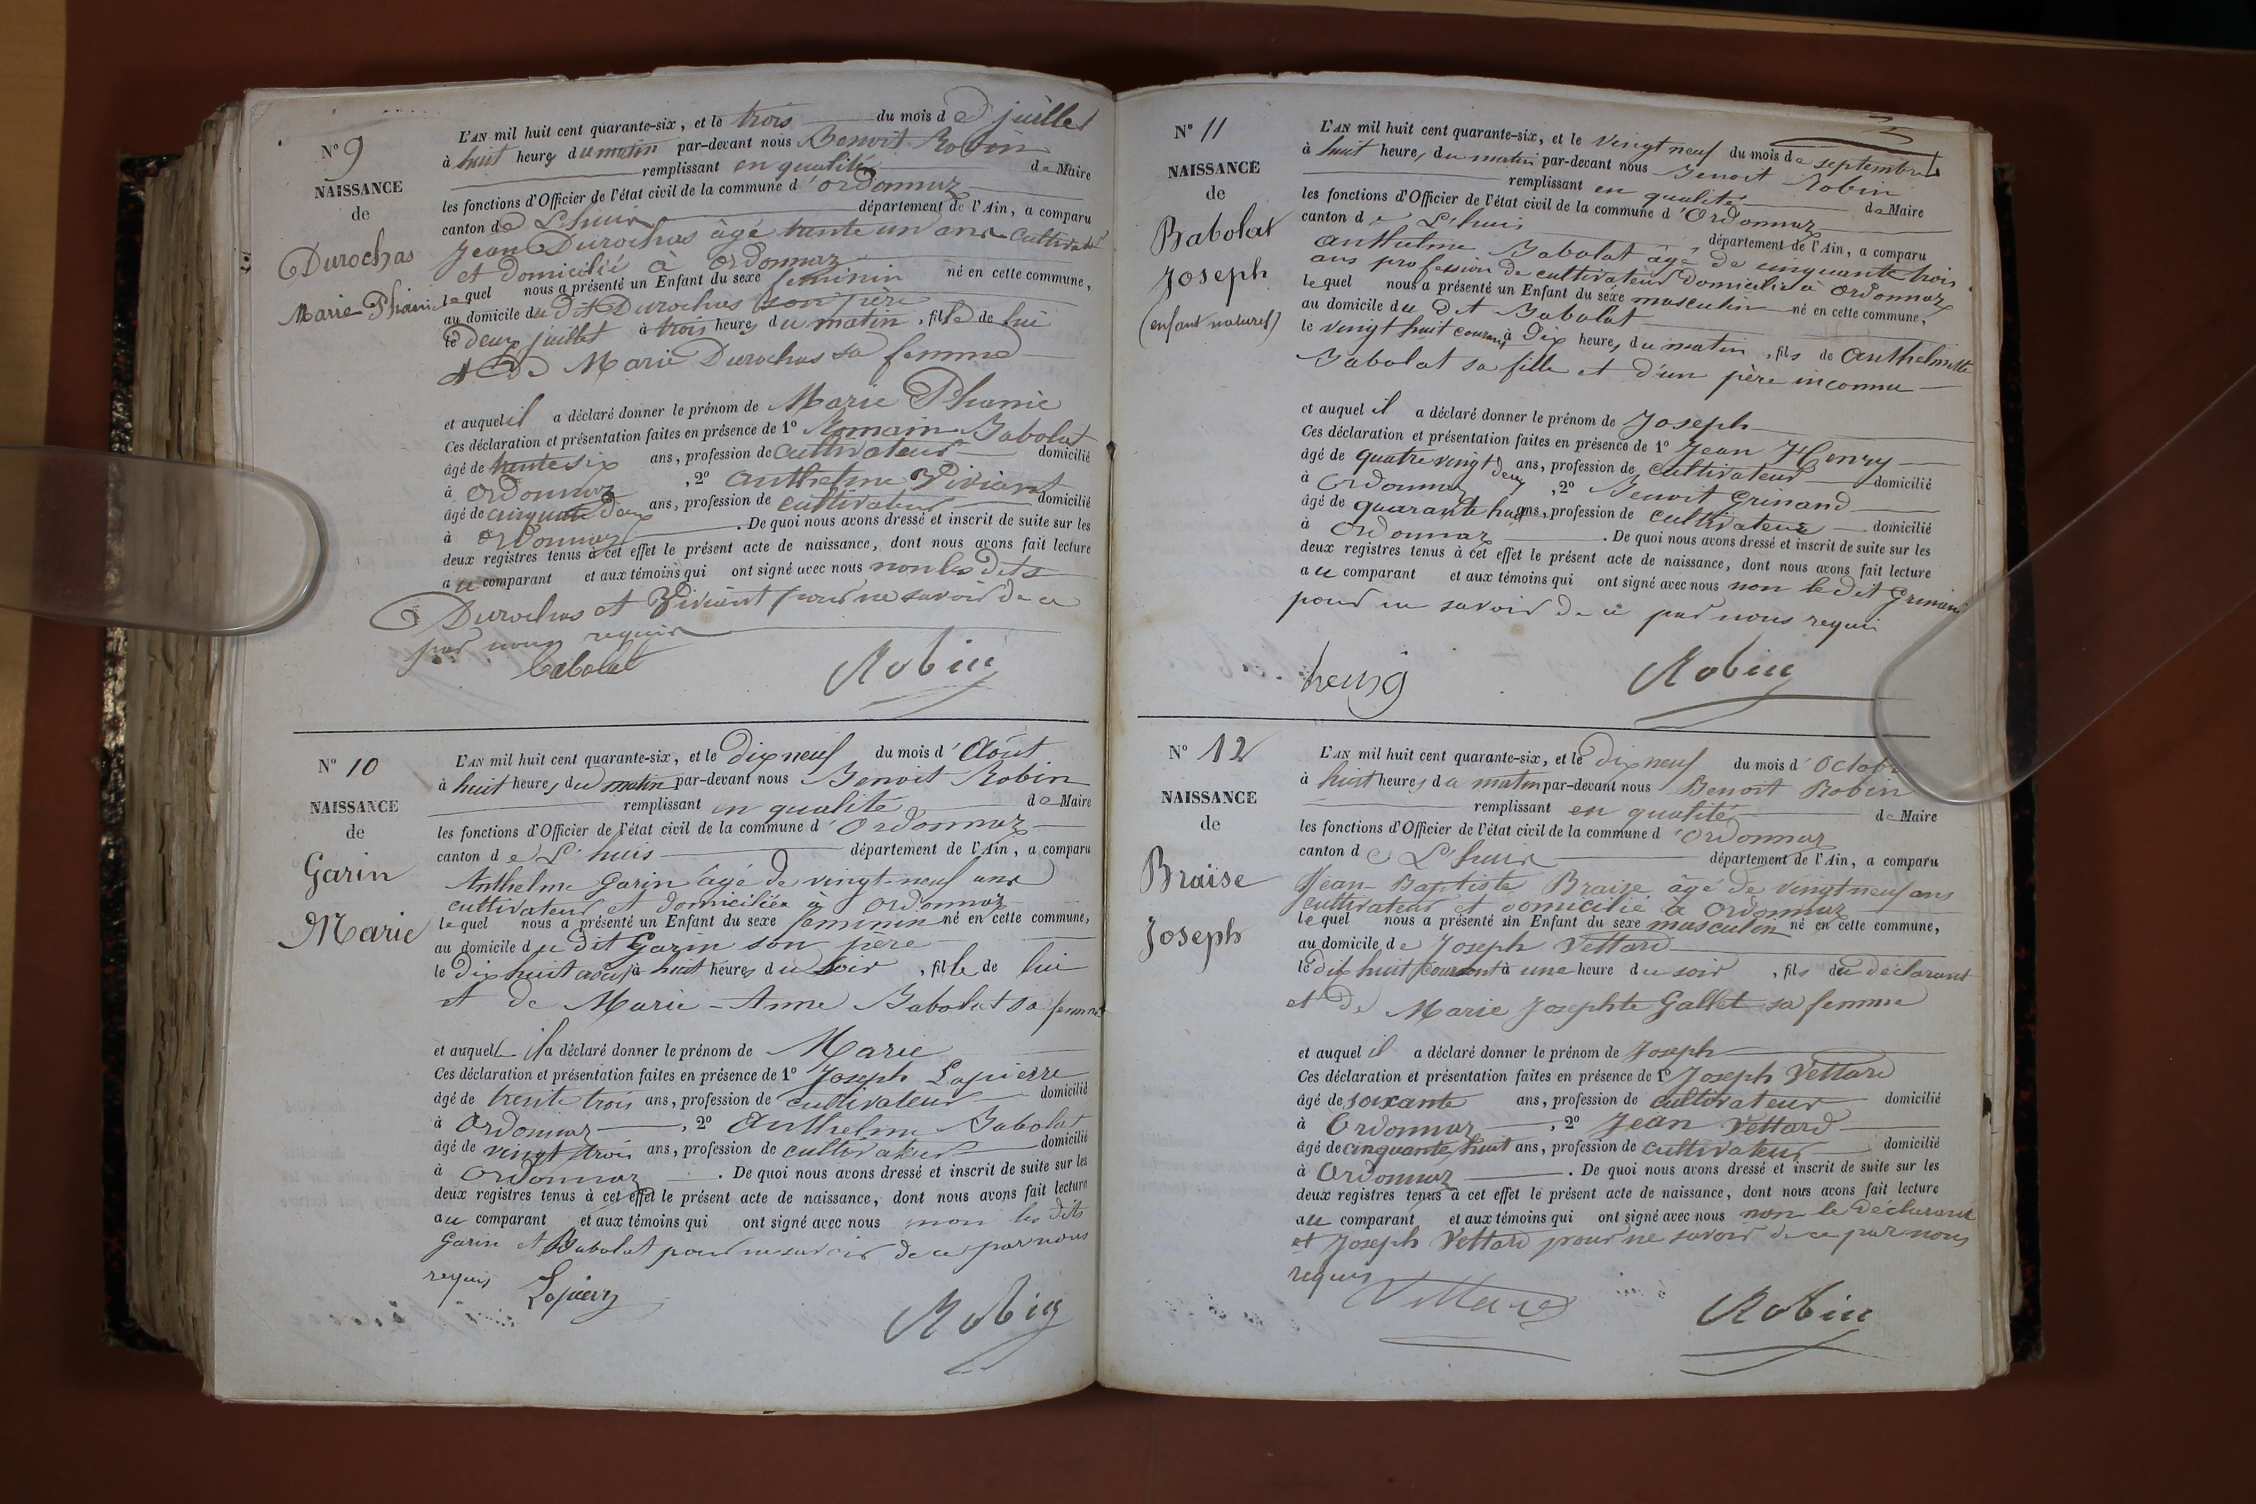 N° 9
NAISSANCE
de
Durochas
Marie Phanie
L'AN mil huit cent quarante-six, et le trois du mois de juillet
à huit heures du matin par-devant nous Benoit Robin
remplissant en qualité de Maire
les fonctions d'Officier de l'état civil de la commune d'Ordonnaz
canton de L'huis département de l'Ain, a comparu
Jean Durochas âgé trente un ans cultivateur
et domicilié à Ordonnaz
lequel nous a présenté un Enfant du sexe feminin né en cette commune,
au domicile du dit Durochas son père
le deux juillet à trois heures du matin, fille de lui
et de Marie Durochas sa femme
et auquel il a déclaré donner le prénom de Marie Phanie
Ces déclaration et présentation faites en présence de 1° Romain Babolat
âgé de trente six ans, profession de cultivateur domicilié
à Ordonnaz, 2° Anthelme Viviant
âgé de cinquante deux ans, profession de cultivateur domicilié
à Ordonnaz. De quoi nous avons dressé et inscrit de suite sur les
deux registres tenus à cet effet le présent acte de naissance, dont nous avons fait lecture
au comparant et aux témoins qui ont signé avec nous non les dits
Durochas et Viviant pour ne savoir de ce
par nous requis
Babolat Robin
N° 10
NAISSANCE
de
Garin
Marie
L'AN mil huit cent quarante-six, et le dix neuf du mois d'Août
à huit heures du matin par-devant nous Benoit Robin
remplissant en qualité de Maire
les fonctions d'Officier de l'état civil de la commune d'Ordonnaz
canton de L'huis département de l'Ain, a comparu
Anthelme Garin âgé de vingt-neuf ans
cultivateur et domiciliée a Ordonnaz
lequel nous a présenté un Enfant du sexe feminin né en cette commune,
au domicile du dit Garin son père
le dix huit août à huit heures du soir, fille de lui
et de Marie-Anne Babolat sa femme
et auquel il a déclaré donner le prénom de Marie
Ces déclaration et présentation faites en présence de 1° Joseph Lapierre
âgé de trente trois ans, profession de cultivateur domicilié
à Ordonnaz, 2° Anthelme Babolat
âgé de vingt trois ans, profession de cultivateur domicilié
à Ordonnaz. De quoi nous avons dressé et inscrit de suite sur les
deux registres tenus à cet effet le présent acte de naissance, dont nous avons fait lecture
au comparant et aux témoins qui ont signé avec nous non les dits
Garin et Babolat pour ne savoir de ce par nous
requis Lapierre Robin
N° 11
NAISSANCE
de
Babolat
Joseph
(enfant naturel)
L'AN mil huit cent quarante-six, et le vingt neuf du mois de septembre
à huit heures du matin par-devant nous Benoit Robin
remplissant en qualités de Maire
les fonctions d'Officier de l'état civil de la commune d'Ordonnaz
canton de L'huis département de l'Ain, a comparu
Anthelme Babolat âgé de cinquante trois
ans profession de cultivateur domicilié à Ordonnaz
lequel nous a présenté un Enfant du sexe masculin né en cette commune,
au domicile du dit Babolat
le vingt huit courant à dix heures du matin, fils de Anthelmette
Babolat sa fille et d'un père inconnu
et auquel il a déclaré donner le prénom de Joseph
Ces déclaration et présentation faites en présence de 1° Jean Henry
âgé de quatre vingt deux ans, profession de cultivateur domicilié
à Ordonnaz, 2° Benoit Grinand
âgé de quarante huit ans, profession de cultivateur domicilié
à Ordonnaz. De quoi nous avons dressé et inscrit de suite sur les
deux registres tenus à cet effet le présent acte de naissance, dont nous avons fait lecture
au comparant et aux témoins qui ont signé avec nous non le dit Grinand
pour ne savoir de ce par nous requis
Robin
N° 12
NAISSANCE
de
Braise
Joseph
L'AN mil huit cent quarante-six, et le dix neuf du mois d'Octobre
à huit heures du matin par-devant nous Benoit Robin
remplissant en qualité de Maire
les fonctions d'Officier de l'état civil de la commune d'Ordonnaz
canton de L'huis département de l'Ain, a comparu
Jean-Baptiste Braise âgé de vingt neuf ans
cultivateur et domicilié a Ordonnaz
lequel nous a présenté un Enfant du sexe masculin né en cette commune,
au domicile de Joseph Vettard
le dix huit courant à une heure du soir, fils du déclarant
et de Marie Josephte Gallet sa femme
et auquel il a déclaré donner le prénom de Joseph
Ces déclaration et présentation faites en présence de 1° Joseph Vettard
âgé de soixante ans, profession de cultivateur domicilié
à Ordonnaz, 2° Jean Vettard
âgé de cinquante huit ans, profession de cultivateur domicilié
à Ordonnaz. De quoi nous avons dressé et inscrit de suite sur les
deux registres tenus à cet effet le présent acte de naissance, dont nous avons fait lecture
au comparant et aux témoins qui ont signé avec nous non le déclarant
et Joseph Vettard pour ne savoir de ce par nous
requis
Vettard Robin